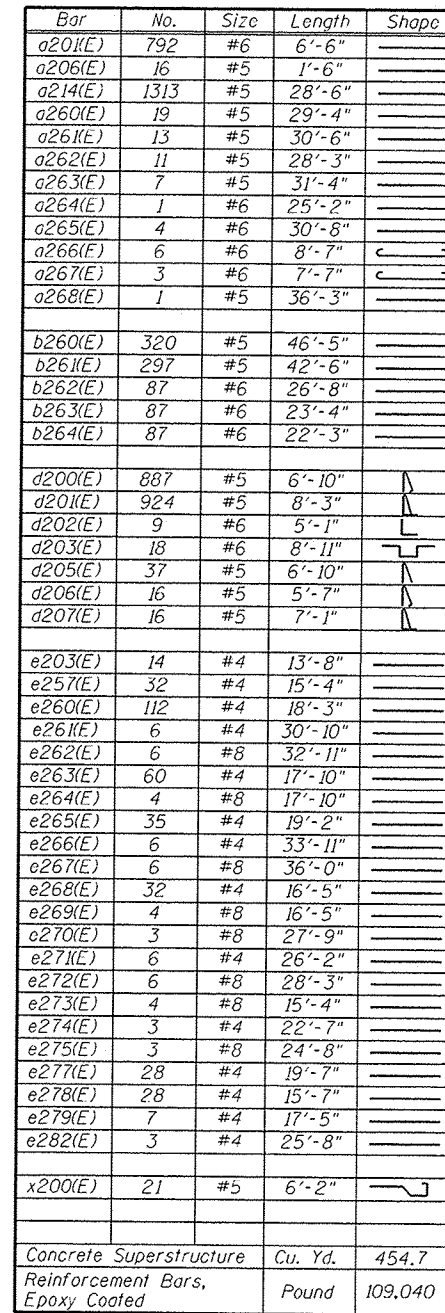 Bar No. Size Length Shape
a201(E) 792 #6 6'-6"
a206(E) 16 #5 1'-6"
a214(E) 1313 #5 28'-6"
a260(E) 19 #5 29'-4"
a261(E) 13 #5 30'-6"
a262(E) 11 #5 28'-3"
a263(E) 7 #5 31'-4"
a264(E) 1 #6 25'-2"
a265(E) 4 #6 30'-8"
a266(E) 6 #6 8'-7"
a267(E) 3 #6 7'-7"
a268(E) 1 #5 36'-3"
b260(E) 320 #5 46'-5"
b261(E) 297 #5 42'-6"
b262(E) 87 #6 26'-8"
b263(E) 87 #6 23'-4"
b264(E) 87 #6 22'-3"
d200(E) 887 #5 6'-10"
d201(E) 924 #5 8'-3"
d202(E) 9 #6 5'-1"
d203(E) 18 #6 8'-11"
d205(E) 37 #5 6'-10"
d206(E) 16 #5 5'-7"
d207(E) 16 #5 7'-1"
e203(E) 14 #4 13'-8"
e257(E) 32 #4 15'-4"
e260(E) 112 #4 18'-3"
e261(E) 6 #4 30'-10"
e262(E) 6 #8 32'-11"
e263(E) 60 #4 17'-10"
e264(E) 4 #8 17'-10"
e265(E) 35 #4 19'-2"
e266(E) 6 #4 33'-11"
e267(E) 6 #8 36'-0"
e268(E) 32 #4 16'-5"
e269(E) 4 #8 16'-5"
e270(E) 3 #8 27'-9"
e271(E) 6 #4 26'-2"
e272(E) 6 #8 28'-3"
e273(E) 4 #8 15'-4"
e274(E) 3 #4 22'-7"
e275(E) 3 #8 24'-8"
e277(E) 28 #4 19'-7"
e278(E) 28 #4 15'-7"
e279(E) 7 #4 17'-5"
e282(E) 3 #4 25'-8"
x200(E) 21 #5 6'-2"
Concrete Superstructure Cu. Yd. 454.7
Reinforcement Bars,
Epoxy Coated Pound 109,040